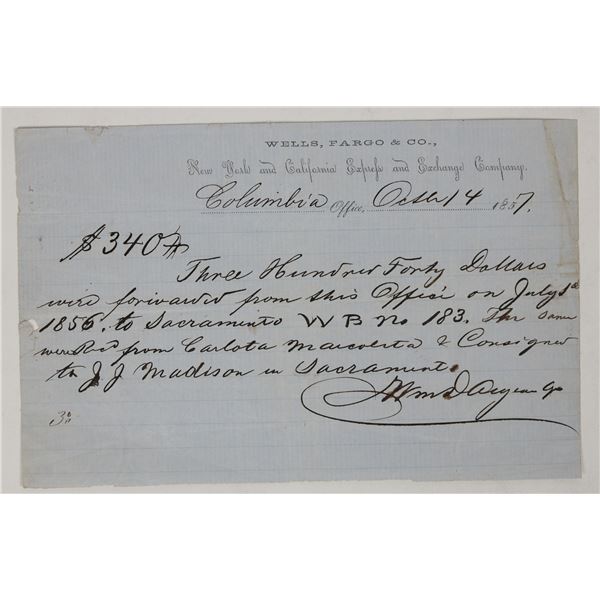 WELLS, FARGO & CO.,
New York and California Express and Exchange Company.
Columbia Office, Octbr 14 1857.
$340
Three Hundred Forty Dollars
were forwarded from this Office on July 1st
1856. to Sacramento W B No 183. The same
were Recd from Carlota & Consigned
to J J Madison in Sacramento
Wm Agt